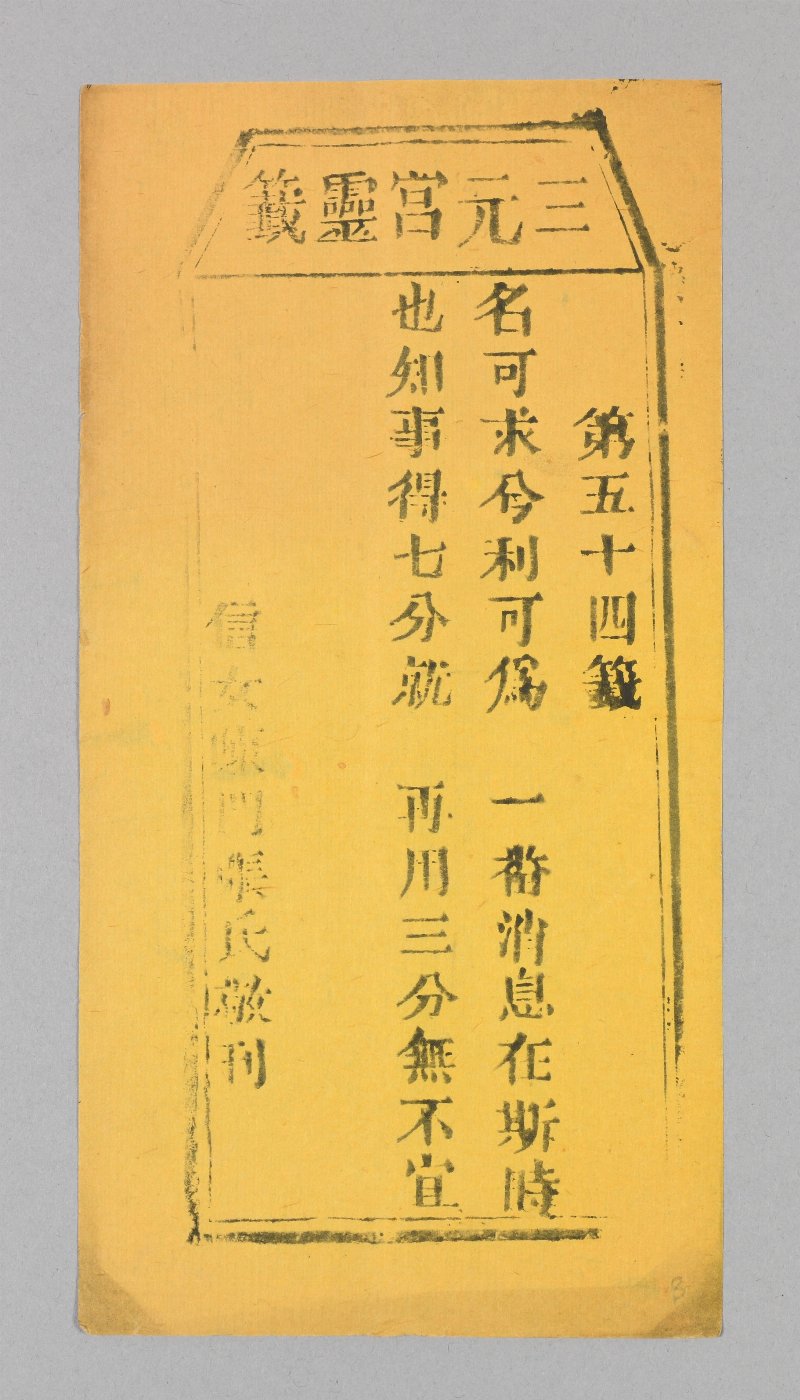 三元宮靈籤
第五十四籤
名可求兮利可為 一番消息在斯時
也知事得七分就 再用三分無不宜
信女 門張氏敬刊